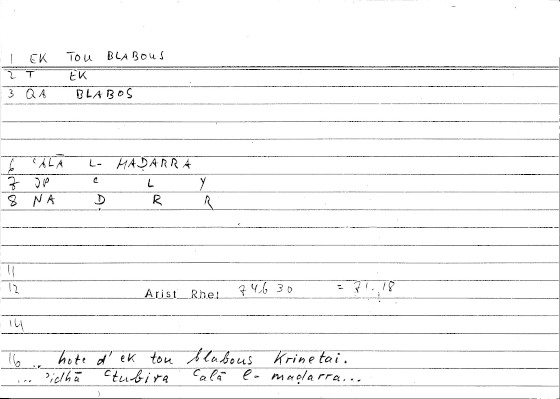 1 EK TOU BLABOUS
2 T EK
3 QA BLABOS
6 ʿALĀ L- MAḌARRA
7 JP ʿ L Y
8 NA Ḍ R R
11
12 Arist Rhet 74b 30 = 71,18
14
16 .. hote d' ek tou blabous Krinetai.
... ʾidhā ʿtubira ʿalā l- maḍarra...